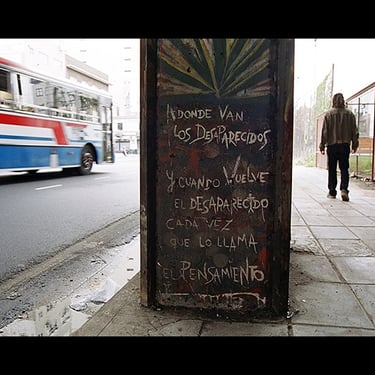 ADONDE VAN
LOS DESAPARECIDOS
Y CUANDO VUELVE
EL DESAPARECIDO
CADA VEZ
QUE LO LLAMA
EL PENSAMIENTO